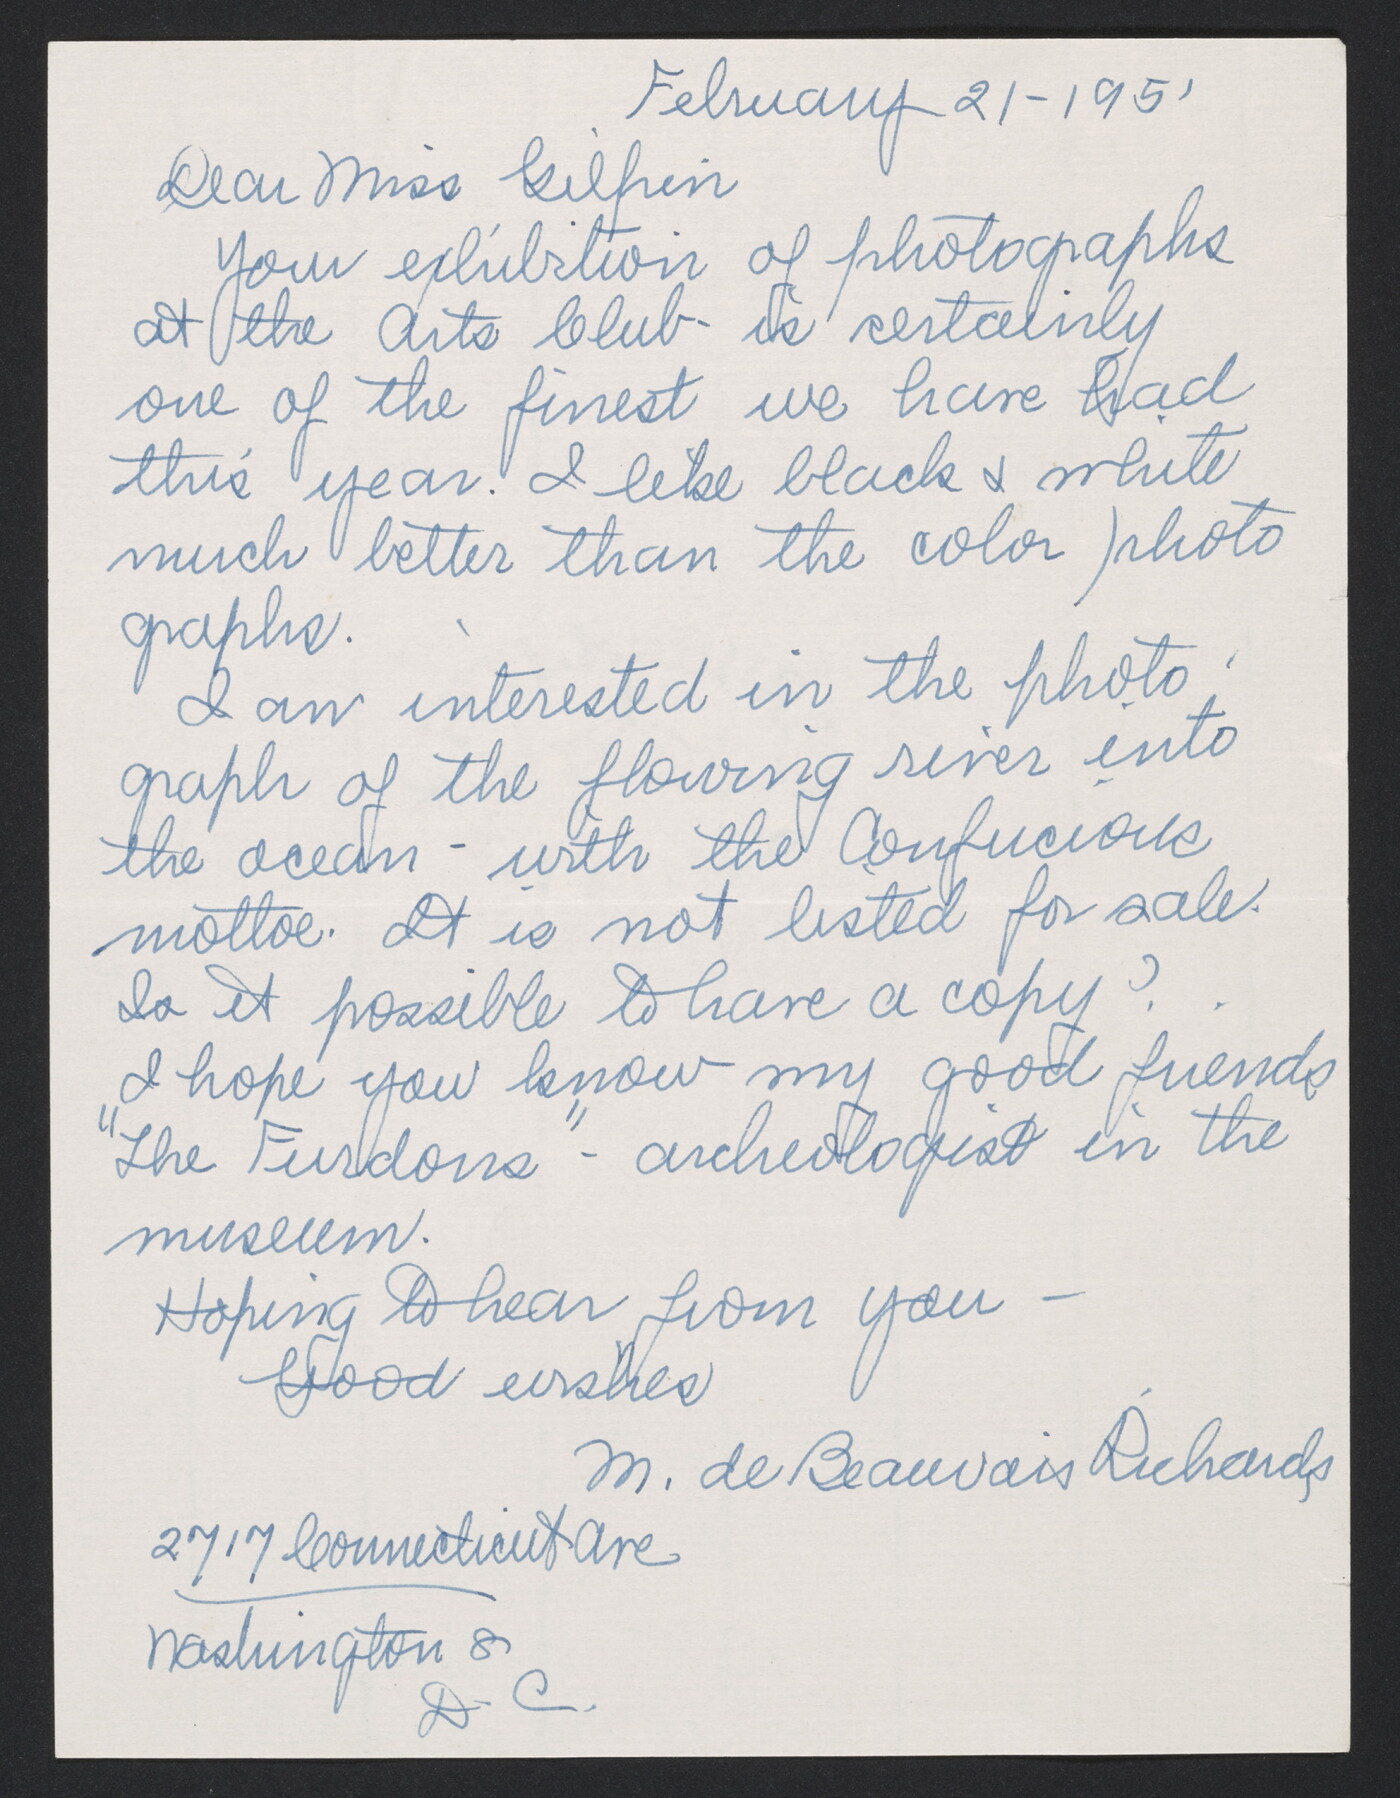 February 21-1951
Dear Miss Gilpin
Your exhibition of photographs
at the Arts Club- is certainly
one of the finest we have had
this year. I like black & white
much better than the color photo
graphs.
I am interested in the photo
graph of the flowing river into
the ocean - with the Confucious
mottoe. It is not listed for sale.
Is it possible to have a copy?
I hope you know my good friends
"The Furdons" - archeologist in the
museum.
Hoping to hear from you -
Good wishes
M. de Beauvais Richards
2717 Connecticut Ave
Washington 8
D. C.